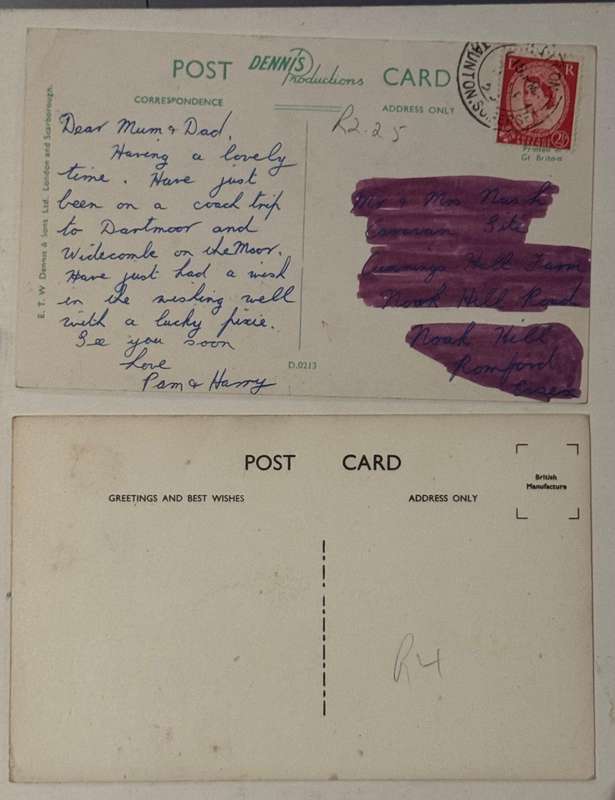 POST DENNIS Productions CARD
CORRESPONDENCE
ADDRESS ONLY
E. T. W. Dennis & Sons Ltd. London and Scarborough.
Dear Mum & Dad,
Having a lovely
time. Have just
been on a coach trip
to Dartmoor and
Widecombe on the Moor.
Have just had a wish
in the wishing well
with a lucky pixie.
See you soon
Love
Pam & Harry
R2.25
TAUNTON
E R
2½
Printed in
Gt Britain
Mr & Mrs Nash
Caravan Site
Hill Farm
Noak Hill Road
Noak Hill
Romford
Essex
D.0213
POST CARD
GREETINGS AND BEST WISHES
ADDRESS ONLY
British
Manufacture
R4